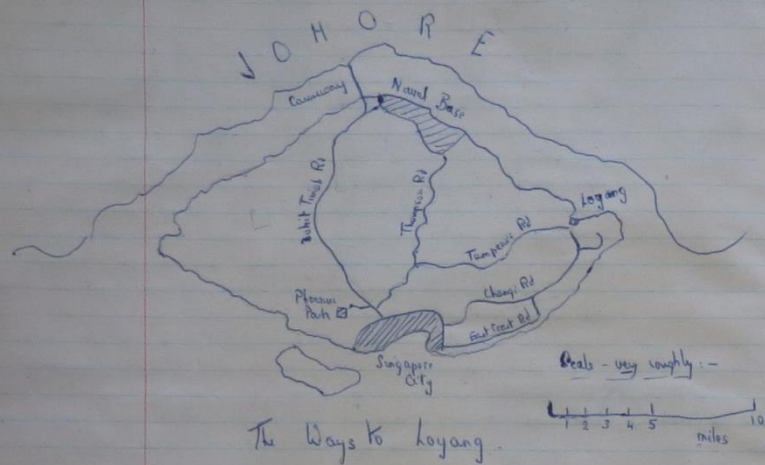 JOHORE
Causeway
Naval Base
Bukit Timah Rd
Thompson Rd
Loyang
Tampenis Rd
Changi Rd
East Coast Rd
Park
Singapore
City
Scale - very roughly :-
1 2 3 4 5 10
miles
The Ways to Loyang.